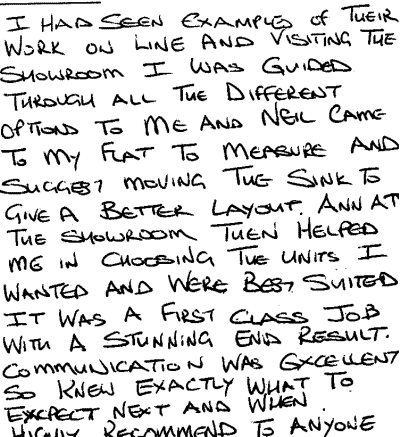 I HAD SEEN EXAMPLES OF THEIR
WORK ON LINE AND VISITING THE
SHOWROOM I WAS GUIDED
THROUGH ALL THE DIFFERENT
OPTIONS TO ME AND NEIL CAME
TO MY FLAT TO MEASURE AND
SUGGEST MOVING THE SINK TO
GIVE A BETTER LAYOUT. ANN AT
THE SHOWROOM THEN HELPED
ME IN CHOOSING THE UNITS I
WANTED AND WERE BEST SUITED
IT WAS A FIRST CLASS JOB
WITH A STUNNING END RESULT.
COMMUNICATION WAS EXCELLENT
SO KNEW EXACTLY WHAT TO
EXPECT NEXT AND WHEN.
HIGHLY RECOMMEND TO ANYONE